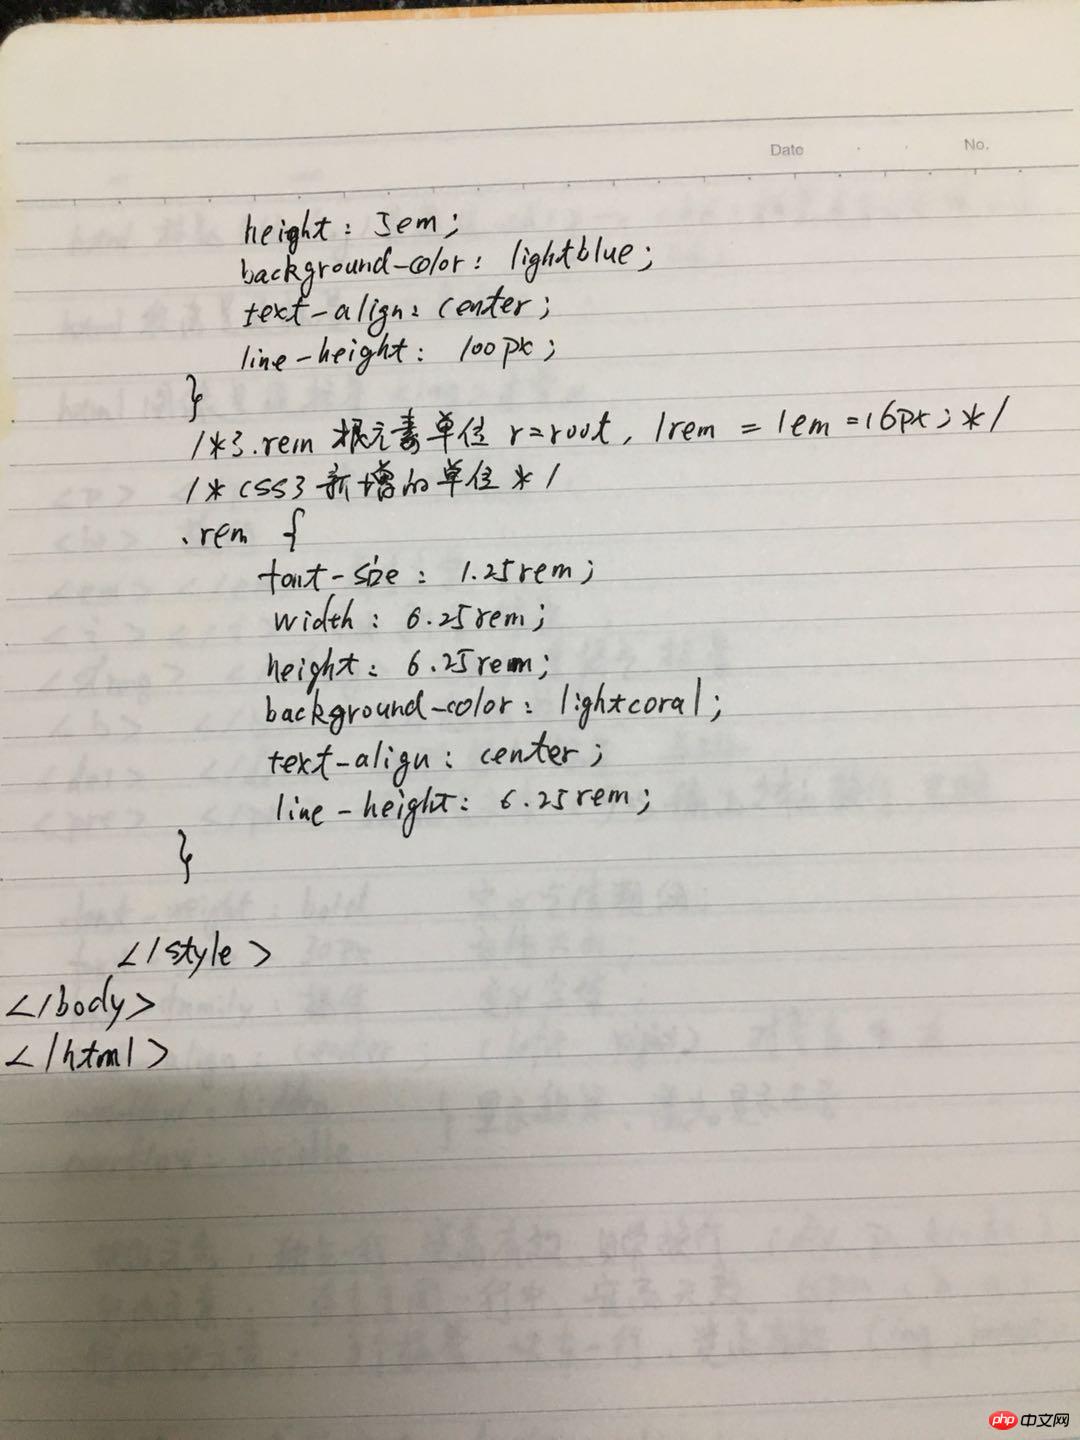 Date No.
height: 5em;
background-color: lightblue;
text-align: center;
line-height: 100px;
}
/*3.rem 根元素单位 r=root, 1rem = 1em =16px;*/
/* css3 新增的单位 */
.rem {
font-size: 1.25rem;
width: 6.25rem;
height: 6.25rem;
background-color: lightcoral;
text-align: center;
line-height: 6.25rem;
}
</style>
</body>
</html>
php 中文网